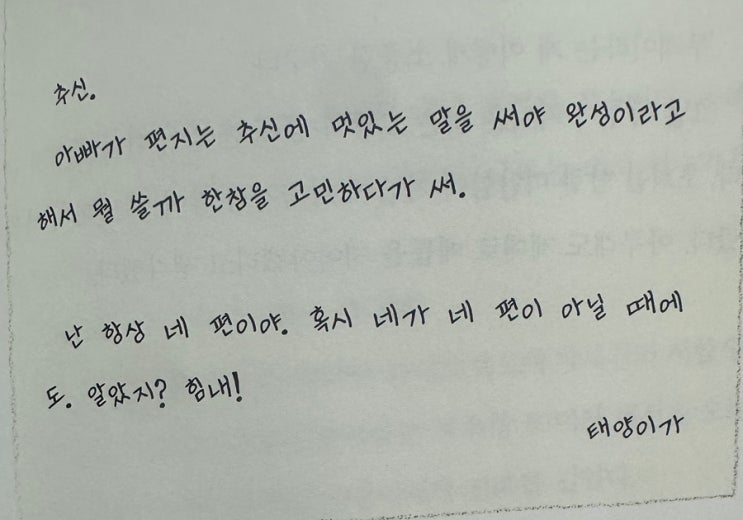 추신.
아빠가 편지는 추신에 멋있는 말을 써야 완성이라고
해서 뭘 쓸까 한참을 고민하다가 써.
난 항상 네 편이야. 혹시 네가 네 편이 아닐 때에
도. 알았지? 힘내!
태양이가